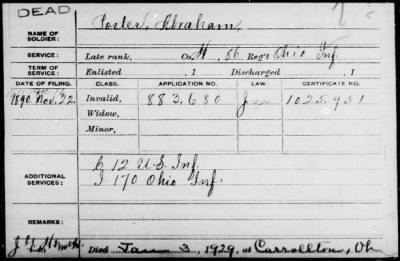 DEAD
NAME OF SOLDIER: Foster, Abraham,
SERVICE: Late rank, Co. H, 86 Reg't Ohio Inf.
TERM OF SERVICE: Enlisted , 1 Discharged , 1
DATE OF FILING. CLASS. APPLICATION NO. LAW. CERTIFICATE NO.
1890 Nov. 22 Invalid, 883.680 1025.951
Widow,
Minor,
C 12 U.S. Inf.
ADDITIONAL SERVICES: I 170 Ohio Inf.
REMARKS:
Died Jan 3, 1929, at Carrollton, Oh